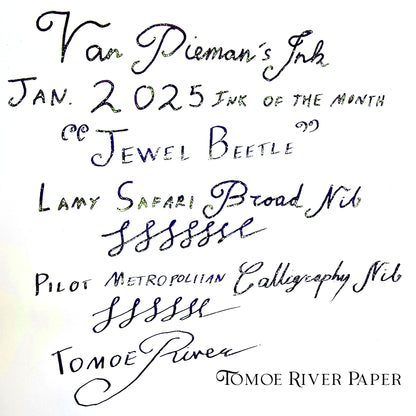 Van Dieman's Ink
Jan. 2025 Ink of the Month
"Jewel Beetle"
Lamy Safari Broad Nib
Pilot Metropolitian Calligraphy Nib
Tomoe River
Tomoe River Paper